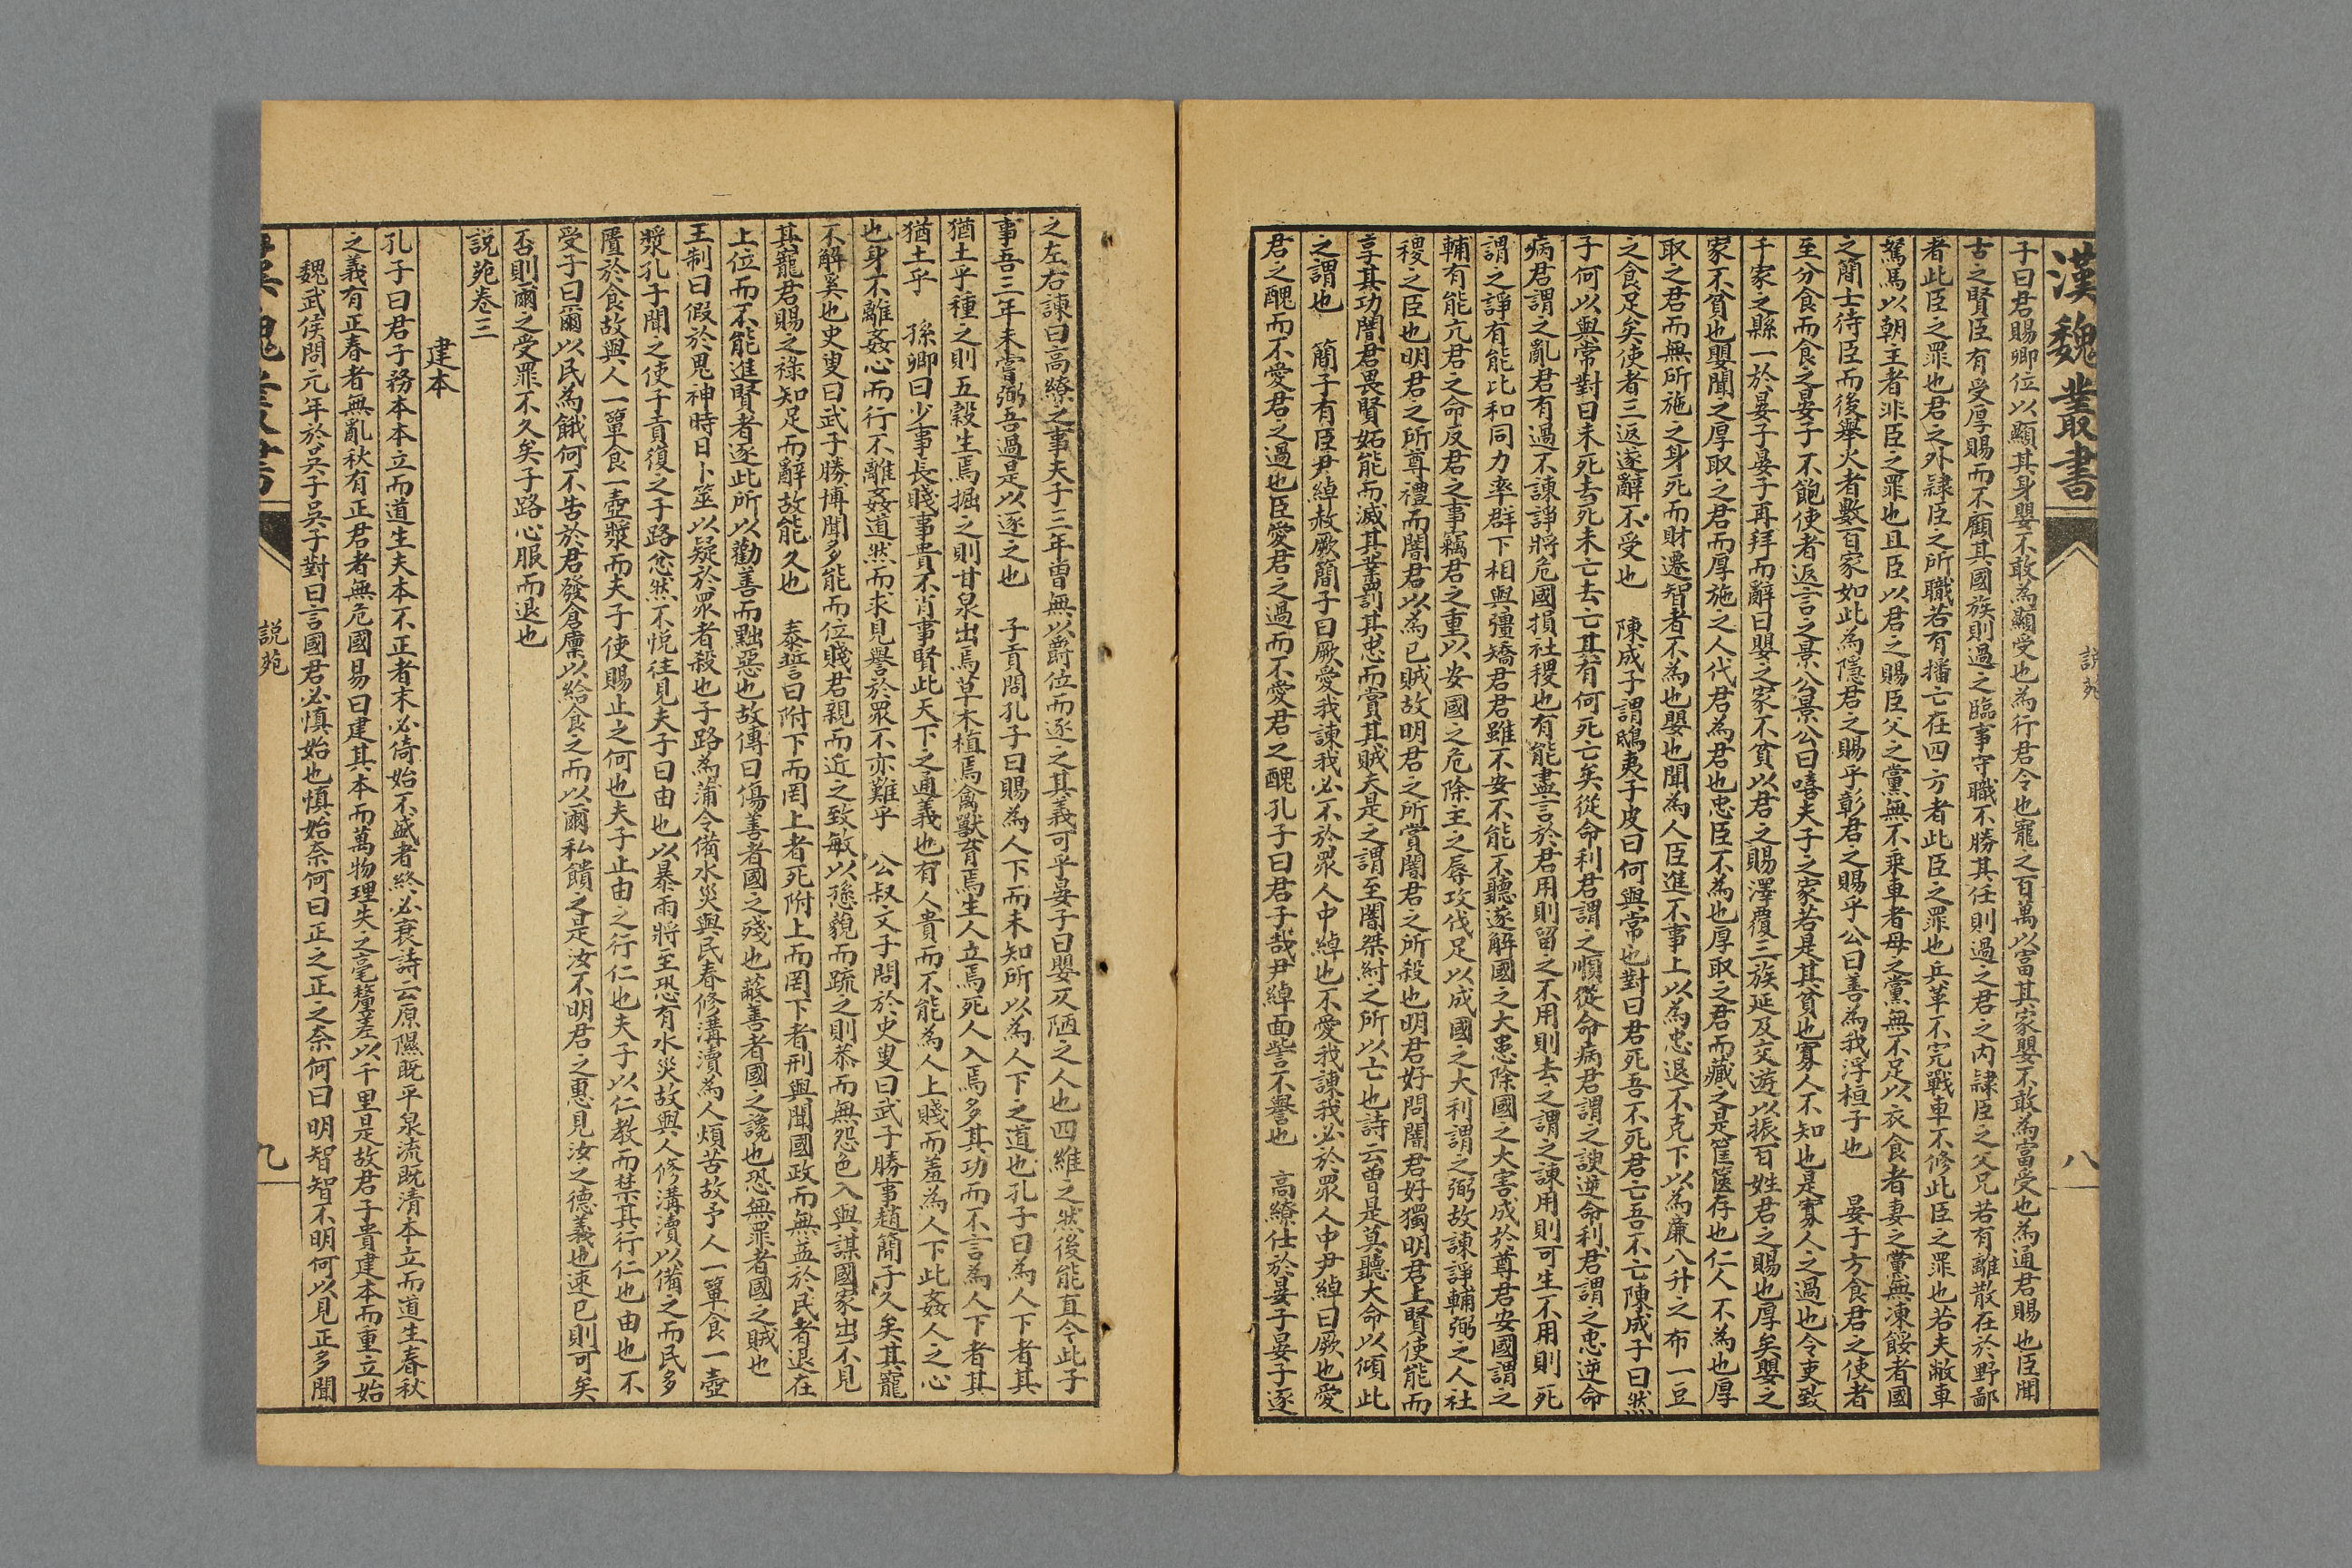 漢魏叢書
説苑
八
子曰君賜卿位以顯其身嬰不敢為顯受也為行君令也寵之百萬以富其家嬰不敢為富受也為通君賜也臣聞
古之賢臣有受厚賜而不顧其國族則過之臨事守職不勝其任則過之君之內隷臣之父兄若有離散在於野鄙
者此臣之罪也君之外隷臣之所職若有播亡在四方者此臣之罪也兵革不完戰車不修此臣之罪也若夫敝車
駑馬以朝主者非臣之罪也且臣以君之賜臣父之黨無不乘車者母之黨無不足以衣食者妻之黨無凍餒者國
之簡士待臣而後舉火者數百家如此為隱君之賜乎彰君之賜乎公曰善為我浮桓子也　晏子方食君之使者
至分食而食之晏子不飽使者返言之景公景公曰嘻夫子之家若是其貧也寡人不知也是寡人之過也令吏致
千家之縣一於晏子晏子再拜而辭曰嬰之家不貧以君之賜澤覆三族延及交遊以振百姓君之賜也厚矣嬰之
家不貧也嬰聞之厚取之君而厚施之人代君為君也忠臣不為也厚取之君而藏之是筐篋存也仁人不為也厚
取之君而無所施之身死而財遷智者不為也嬰也聞為人臣進不事上以為忠退不克下以為廉八升之布一豆
之食足矣使者三返遂辭不受也　陳成子謂鴟夷子皮曰何與常也對曰君死吾不死君亡吾不亡陳成子曰然
子何以與常對曰未死去死未亡去亡其有何死亡矣從命利君謂之順從命病君謂之諛逆命利君謂之忠逆命
病君謂之亂君有過不諫諍將危國損社稷也有能盡言於君用則留之不用則去之謂之諫用則可生不用則死
謂之諍有能比和同力率群下相與彊矯君君雖不安不能不聽遂解國之大患除國之大害成於尊君安國謂之
輔有能亢君之命反君之事竊君之重以安國之危除主之辱攻伐足以成國之大利謂之弼故諫諍輔弼之人社
稷之臣也明君之所尊禮而闇君以為已賊故明君之所賞闇君之所殺也明君好問闇君好獨明君上賢使能而
享其功闇君畏賢妬能而滅其業罰其忠而賞其賊夫是之謂至闇桀紂之所以亡也詩云曽是莫聽大命以傾此
之謂也　簡子有臣尹綽赦厥簡子曰厥愛我諫我必不於眾人中綽也不愛我諫我必於眾人中尹綽曰厥也愛
君之醜而不愛君之過也臣愛君之過而不愛君之醜孔子曰君子哉尹綽面訾不譽也　高繚仕於晏子晏子逐
之左右諫曰高繚之事夫子三年曽無以爵位而逐之其義可乎晏子曰嬰仄陋之人也四維之然後能直今此子
事吾三年未嘗弼吾過是以逐之也　子貢問孔子曰賜為人下而未知所以為人下之道也孔子曰為人下者其
猶土乎種之則五穀生焉掘之則甘泉出焉草木植焉禽獸育焉生人立焉死人入焉多其功而不言為人下者其
猶土乎　孫卿曰少事長賤事貴不肖事賢此天下之通義也有人貴而不能為人上賤而羞為人下此姦人之心
也身不離姦心而行不離姦道然而求見譽於眾不亦難乎　公叔文子問於史叟曰武子勝事趙簡子久矣其寵
不解奚也史叟曰武子勝博聞多能而位賤君親而近之致敏以愻藐而疏之則恭而無怨色入與謀國家出不見
其寵君賜之祿知足而辭故能久也　泰誓曰附下而罔上者死附上而罔下者刑與聞國政而無益於民者退在
上位而不能進賢者逐此所以勸善而黜惡也故傳曰傷善者國之殘也蔽善者國之讒也恐無罪者國之賊也
王制曰假於鬼神時日卜筮以疑於眾者殺也子路為蒲令備水災與民春修溝瀆為人煩苦故予人一簞食一壺
漿孔子聞之使子貢復之子路忿然不悅往見夫子曰由也以暴雨將至恐有水災故與人修溝瀆以備之而民多
匱於食故與人一簞食一壺漿而夫子使賜止之何也夫子止由之行仁也夫子以仁教而禁其行仁也由也不
受子曰爾以民為餓何不告於君發倉廩以給食之而以爾私饋之是汝不明君之惠見汝之德義也速已則可矣
否則爾之受罪不久矣子路心服而退也
説苑卷三
建本
孔子曰君子務本本立而道生夫本不正者末必倚始不盛者終必衰詩云原隰既平泉流既清本立而道生春秋
之義有正春者無亂秋有正君者無危國易曰建其本而萬物理失之毫釐差以千里是故君子貴建本而重立始
魏武侯問元年於吳子吳子對曰言國君必慎始也慎始奈何曰正之正之奈何曰明智智不明何以見正多聞
漢魏叢書
説苑
九